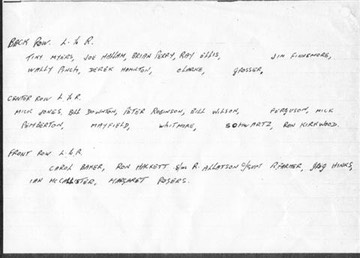 BACK ROW. L. to R.
TINY MYERS, JOE HALLAM, BRIAN PERRY, RAY ELLIS, JIM LIVERMORE,
WALLY PINCH, DEREK HAMILTON, CLARKE, GROSSER,
CENTER ROW L to R.
MICK JONES, BILL DOWNTON, PETER ROBINSON, BILL WILSON, FERGUSON, MICK
PEMBERTON, MAYFIELD, WHITMORE, SCHWARTZ, RON KIRKWOOD.
FRONT ROW L to R
CAROL BAKER, RON HACKETT R. ALLATSON P. FARMER, GREG HINKS,
IAN McCALLISTER, MARGARET ROGERS.